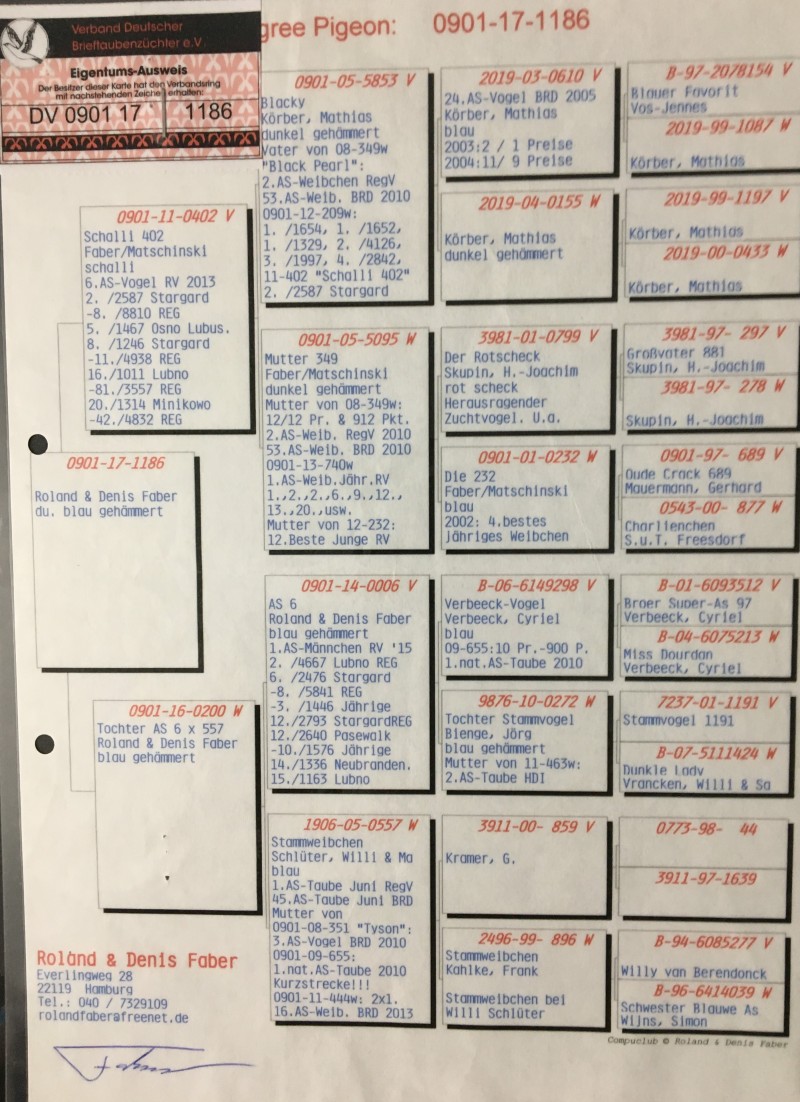 Verband Deutscher
Brieftaubenzüchter e.V.
Eigentums-Ausweis
Der Besitzer dieser Karte hat den Verbandsring
mit nachstehenden Zeichen erhalten:
DV 0901 17 1186
gree Pigeon: 0901-17-1186
0901-17-1186
Roland & Denis Faber
du. blau gehämmert
0901-11-0402 V
Schalli 402
Faber/Matschinski
schalli
6.AS-Vogel RV 2013
2. /2587 Stargard
-8. /8810 REG
5. /1467 Osno Lubus.
8. /1246 Stargard
-11./4938 REG
16./1011 Lubno
-81./3557 REG
20./1314 Minikowo
-42./4832 REG
0901-16-0200 W
Tochter AS 6 x 557
Roland & Denis Faber
blau gehämmert
0901-05-5853 V
Blacky
Körber, Mathias
dunkel gehämmert
Vater von 08-349w
"Black Pearl":
2.AS-Weibchen RegV
53.AS-Weib. BRD 2010
0901-12-209w:
1. /1654, 1. /1652,
1. /1329, 2. /4126,
3. /1997, 4. /2842,
11-402 "Schalli 402"
2. /2587 Stargard
0901-05-5095 W
Mutter 349
Faber/Matschinski
dunkel gehämmert
Mutter von 08-349w:
12/12 Pr. & 912 Pkt.
2.AS-Weib. RegV 2010
53.AS-Weib. BRD 2010
0901-13-740w
1.AS-Weib.Jähr.RV
1.,2.,2.,6.,9.,12.,
13.,20.,usw.
Mutter von 12-232:
12.Beste Junge RV
0901-14-0006 V
AS 6
Roland & Denis Faber
blau gehämmert
1.AS-Männchen RV '15
2. /4667 Lubno REG
6. /2476 Stargard
-8. /5841 REG
-3. /1446 Jährige
12./2793 StargardREG
12./2640 Pasewalk
-10./1576 Jährige
14./1336 Neubranden.
15./1163 Lubno
1906-05-0557 W
Stammweibchen
Schlüter, Willi & Ma
blau
1.AS-Taube Juni RegV
45.AS-Taube Juni BRD
Mutter von
0901-08-351 "Tyson":
3.AS-Vogel BRD 2010
0901-09-655:
1.nat.AS-Taube 2010
Kurzstrecke!!!
0901-11-444w: 2x1.
16.AS-Weib. BRD 2013
2019-03-0610 V
24.AS-Vogel BRD 2005
Körber, Mathias
blau
2003:2 / 1 Preise
2004:11/ 9 Preise
2019-04-0155 W
Körber, Mathias
dunkel gehämmert
3981-01-0799 V
Der Rotscheck
Skupin, H.-Joachim
rot scheck
Herausragender
Zuchtvogel. U.a.
0901-01-0232 W
Die 232
Faber/Matschinski
blau
2002: 4.bestes
jähriges Weibchen
B-06-6149298 V
Verbeeck-Vogel
Verbeeck, Cyriel
blau
09-655:10 Pr.-900 P.
1.nat.AS-Taube 2010
9876-10-0272 W
Tochter Stammvogel
Bienge, Jörg
blau gehämmert
Mutter von 11-463w:
2.AS-Taube HDI
3911-00- 859 V
Kramer, G.
2496-99- 896 W
Stammweibchen
Kahlke, Frank
Stammweibchen bei
Willi Schlüter
B-97-2078154 V
Blauer Favorit
Vos-Jennes
2019-99-1087 W
Körber, Mathias
2019-99-1197 V
Körber, Mathias
2019-00-0433 W
Körber, Mathias
3981-97- 297 V
Großvater 881
Skupin, H.-Joachim
3981-97- 278 W
Skupin, H.-Joachim
0901-97- 689 V
Oude Crack 689
Mauermann, Gerhard
0543-00- 877 W
Charlienchen
S.u.T. Freesdorf
B-01-6093512 V
Broer Super-As 97
Verbeeck, Cyriel
B-04-6075213 W
Miss Dourdan
Verbeeck, Cyriel
7237-01-1191 V
Stammvogel 1191
B-07-5111424 W
Dunkle Lady
Vrancken, Willi & Sa
0773-98- 44
3911-97-1639
B-94-6085277 V
Willy van Berendonck
B-96-6414039 W
Schwester Blauwe As
Wijns, Simon
Compuclub © Roland & Denis Faber
Roland & Denis Faber
Everlingweg 28
22119 Hamburg
Tel.: 040 / 7329109
rolandfaber@freenet.de